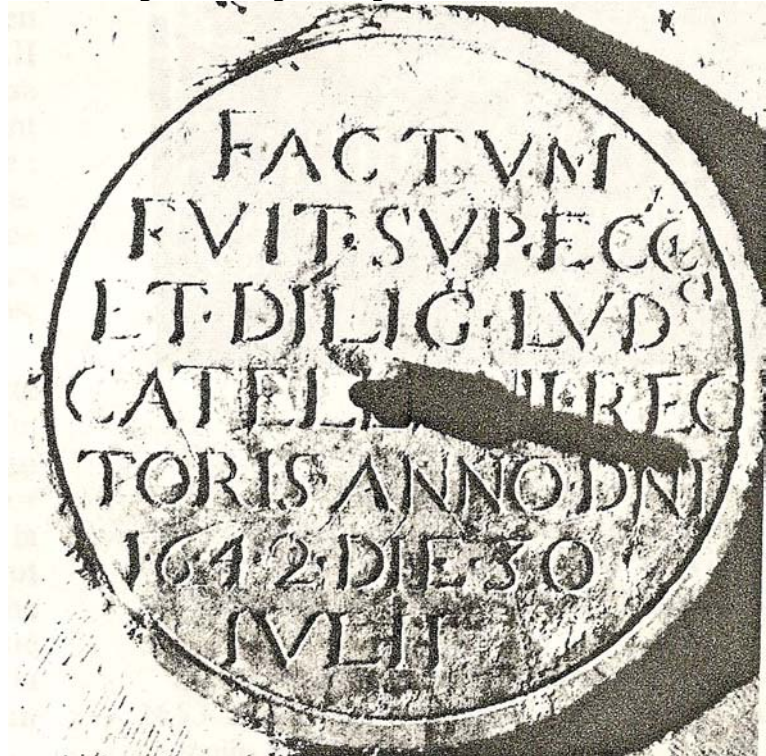 FACTVM
FVIT·SVP·ECCᵒ
ET·DILIG·LVDᵒ
REC
TORIS ANNO DNI
1·6·4·2·DIE·30
IVLII